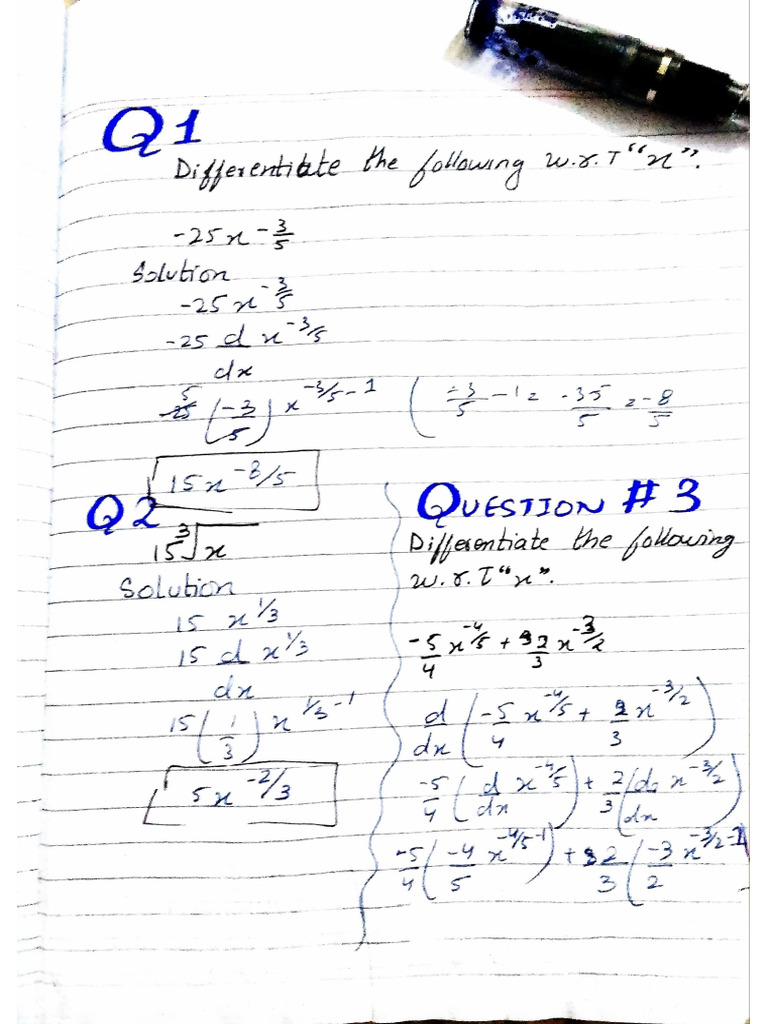 Q1
Differentiate the following w.r.T "x".
-25x - 3/5
Solution
-25x^-3/5
-25 d/dx x^-3/5
5 25 (-3/5) x^-3/5-1 ( -3/5 - 1 = -35/5 = -8/5
15x^-8/5
Q2
15 ∛x
Solution
15 x^1/3
15 d/dx x^1/3
15 (1/3) x^1/3-1
5x^-2/3
QUESTION # 3
Differentiate the following
w.r.T "x".
-5/4 x^-4/5 + 2/3 x^-3/2
d/dx (-5/4 x^-4/5 + 2/3 x^-3/2)
-5/4 (d/dx x^-4/5) + 2/3 (d/dx x^-3/2)
-5/4 (-4/5 x^-4/5-1) + 2/3 (-3/2 x^-3/2-1